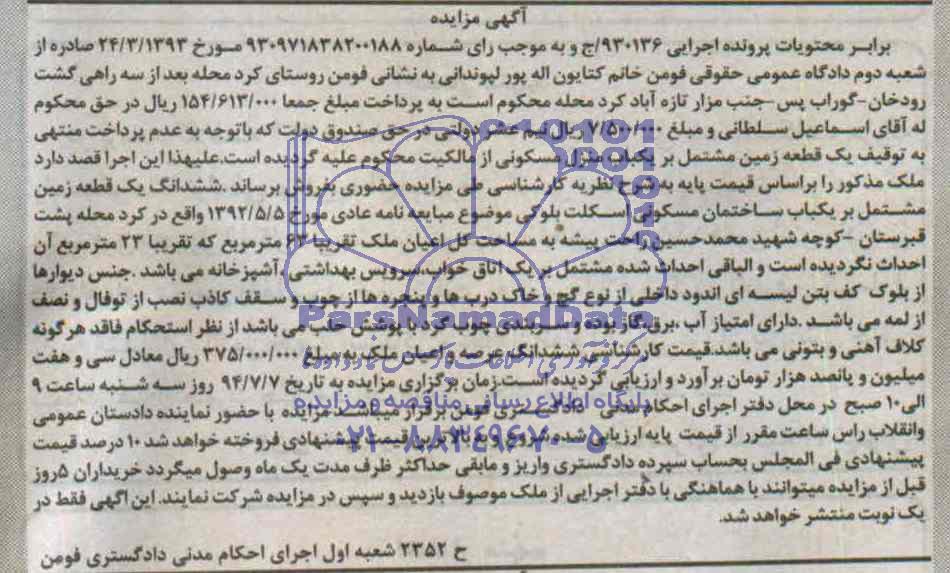 آگهی مزایده
برابر محتویات پرونده اجرایی ۹۳۰۱۳۶/ج و به موجب رای شماره ۹۳۰۹۷۱۸۳۸۲۰۰۱۸۸ مورخ ۲۴/۳/۱۳۹۳ صادره از
شعبه دوم دادگاه عمومی حقوقی فومن خانم کتایون اله پور لپوندانی به نشانی فومن روستای کرد محله بعد از سه راهی گشت
رودخان-گوراب پس-جنب مزار تازه آباد کرد محله محکوم است به پرداخت مبلغ جمعا ۱۵۴/۶۱۳/۰۰۰ ریال در حق محکوم
له آقای اسماعیل سلطانی و مبلغ ۷/۵۰۰/۰۰۰ ریال نیم عشر دولتی در حق صندوق دولت که باتوجه به عدم پرداخت منتهی
به توقیف یک قطعه زمین مشتمل بر یکباب منزل مسکونی از مالکیت محکوم علیه گردیده است.علیهذا این اجرا قصد دارد
ملک مذکور را براساس قیمت پایه به شرح نظریه کارشناسی طی مزایده حضوری بفروش برساند .ششدانگ یک قطعه زمین
مشتمل بر یکباب ساختمان مسکونی اسکلت بلوکی موضوع مبایعه نامه عادی مورخ ۱۳۹۲/۵/۵ واقع در کرد محله پشت
قبرستان -کوچه شهید محمدحسین راحت پیشه به مساحت کل اعیان ملک تقریبا ۶۳ مترمربع که تقریبا ۲۳ مترمربع آن
احداث نگردیده است و الباقی احداث شده مشتمل بر یک اتاق خواب،سرویس بهداشتی ،آشپزخانه می باشد .جنس دیوارها
از بلوک کف بتن لیسه ای اندود داخلی از نوع گچ و خاک درب ها و پنجره ها از چوب و سقف کاذب نصب از توفال و نصف
از لمه می باشد .دارای امتیاز آب ،برق،گاز بوده و سربندی چوب گرد با پوشش حلب می باشد از نظر استحکام فاقد هرگونه
کلاف آهنی و بتونی می باشد.قیمت کارشناسی ششدانگ عرصه و اعیان ملک به مبلغ ۳۷۵/۰۰۰/۰۰۰ ریال معادل سی و هفت
میلیون و پانصد هزار تومان برآورد و ارزیابی گردیده است.زمان برگزاری مزایده به تاریخ ۹۴/۷/۷ روز سه شنبه ساعت ۹
الی۱۰ صبح در محل دفتر اجرای احکام مدنی دادگستری فومن برقرار میباشد. مزایده با حضور نماینده دادستان عمومی
وانقلاب راس ساعت مقرر از قیمت پایه ارزیابی شده شروع و به بالاترین قیمت پیشنهادی فروخته خواهد شد ۱۰ درصد قیمت
پیشنهادی فی المجلس بحساب سپرده دادگستری واریز و مابقی حداکثر ظرف مدت یک ماه وصول میگردد خریداران ۵روز
قبل از مزایده میتوانند با هماهنگی با دفتر اجرایی از ملک موصوف بازدید و سپس در مزایده شرکت نمایند. این اگهی فقط در
یک نوبت منتشر خواهد شد.
ح ۲۳۵۲ شعبه اول اجرای احکام مدنی دادگستری فومن
ParsNamadData
پایگاه اطلاع رسانی مناقصه و مزایده
۰۲۱-۸۸۳۴۹۶۷۰-۵